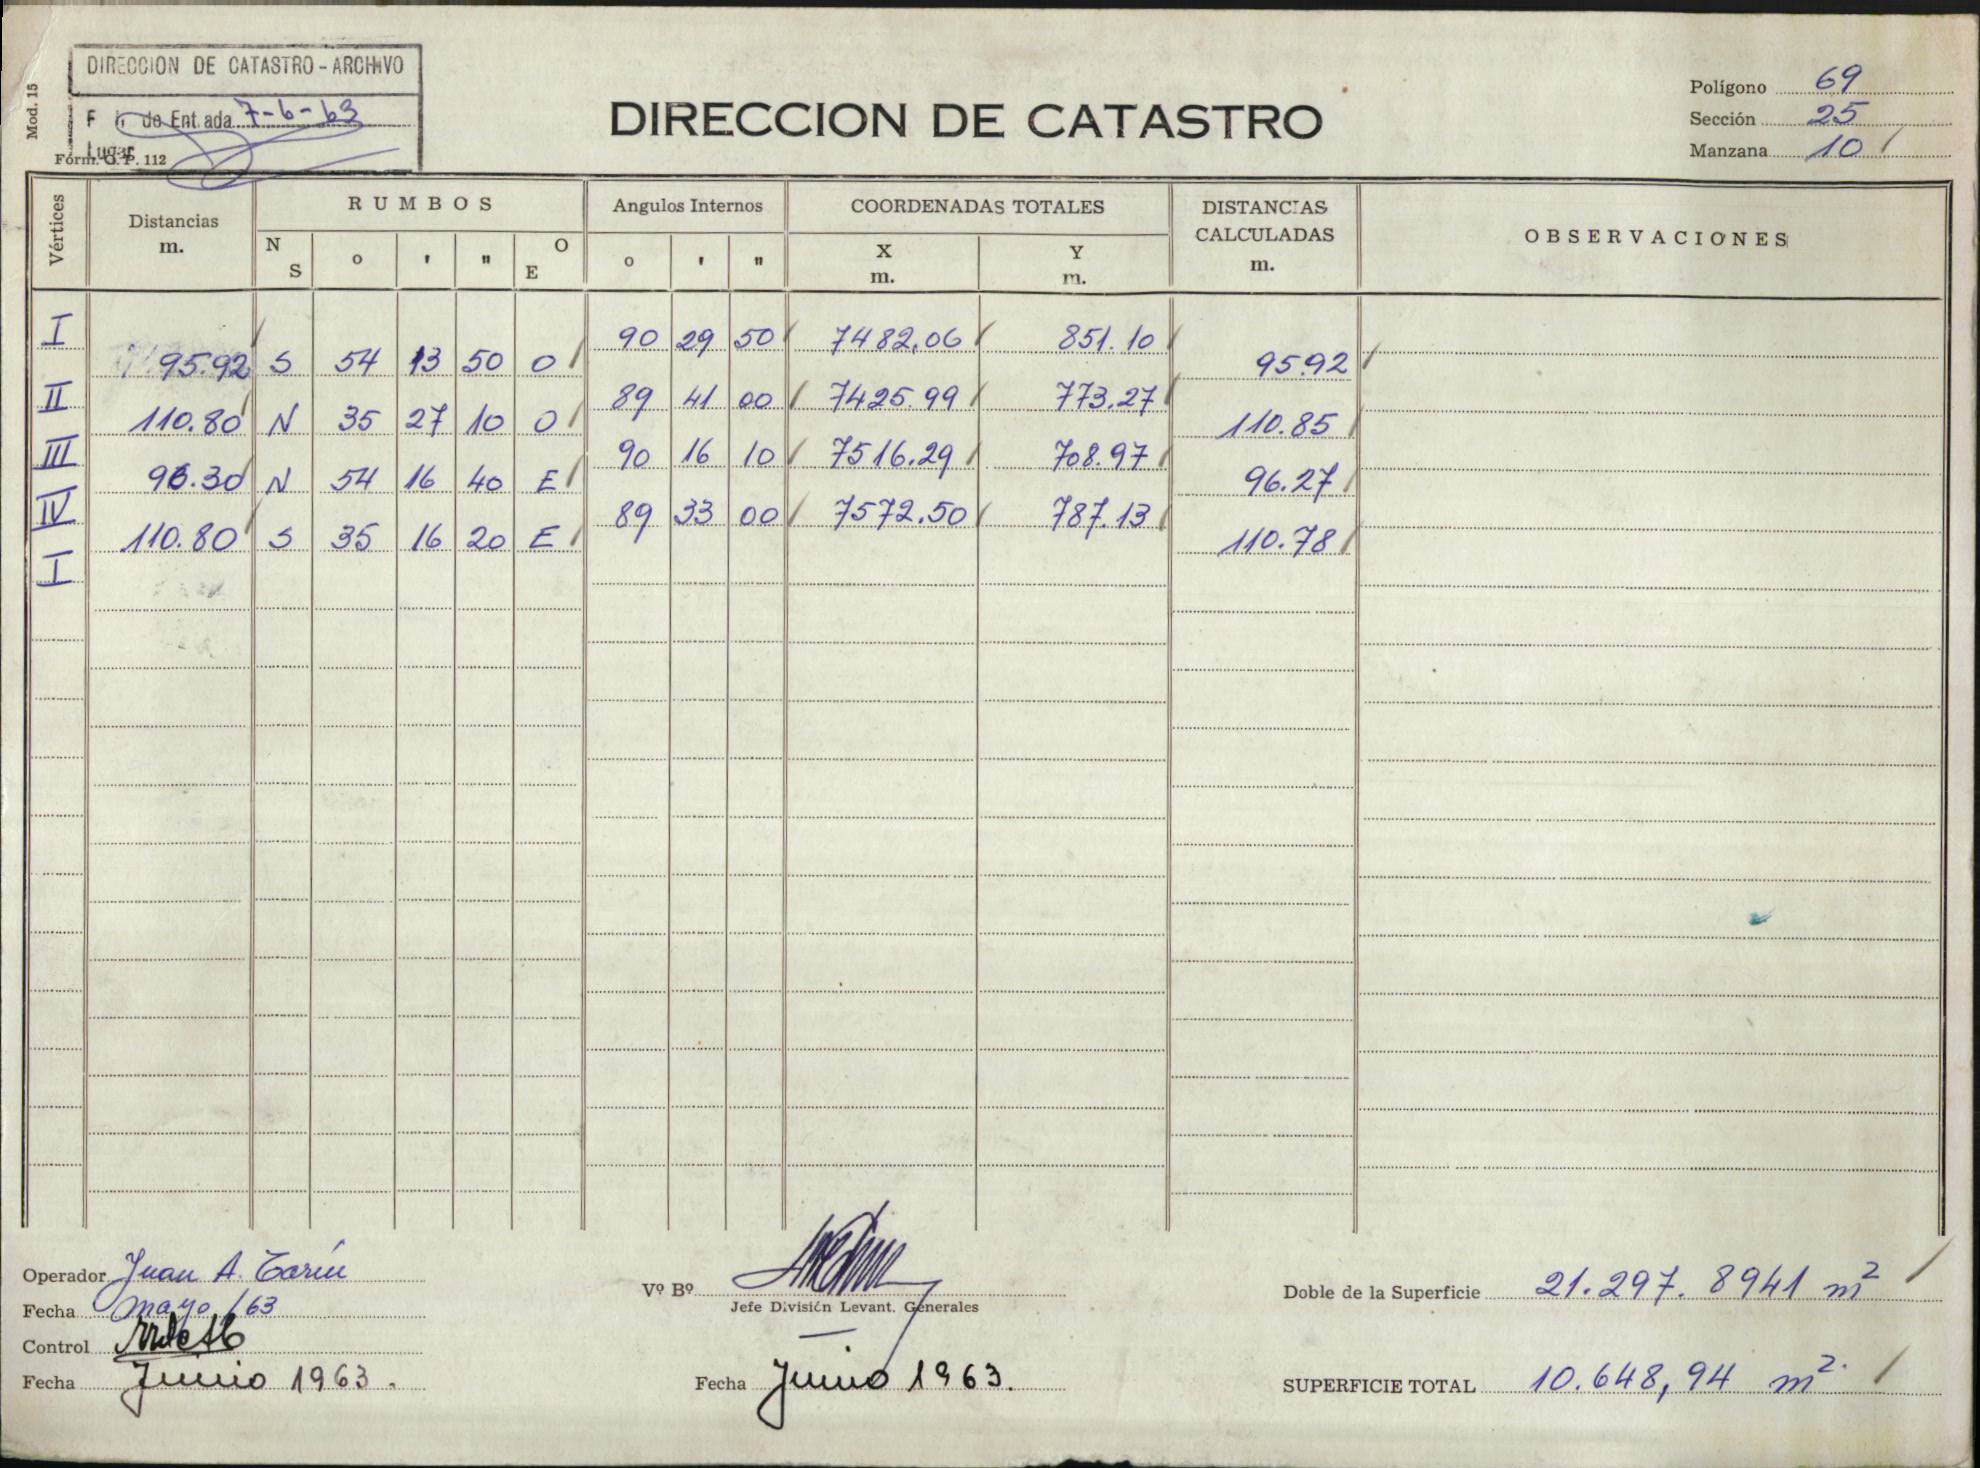 Mod. 15
DIRECCION DE CATASTRO - ARCHIVO
de Ent.ada 7-6-63
Lugar
Fórm. O. P. 112
DIRECCION DE CATASTRO
Polígono 69
Sección 25
Manzana 10
Vértices Distancias m. RUMBOS Angulos Internos COORDENADAS TOTALES DISTANCIAS CALCULADAS m. OBSERVACIONES
N S o ' " O E o ' " X m. Y m.
I 90 29 50 7482,06 851.10
95.92 S 54 13 50 O 95.92
II 89 41 00 7425.99 773.27
110.80 N 35 27 10 O 110.85
III 90 16 10 7516.29 708.97
96.30 N 54 16 40 E 96.27
IV 89 33 00 7572.50 787.13
110.80 S 35 16 20 E 110.78
I
Operador Juan A. Tarín
Fecha mayo/63
Control
Fecha Junio 1963.
Vº Bº
Jefe División Levant. Generales
Fecha Junio 1963.
Doble de la Superficie 21.297.8941 m²
SUPERFICIE TOTAL 10.648,94 m².